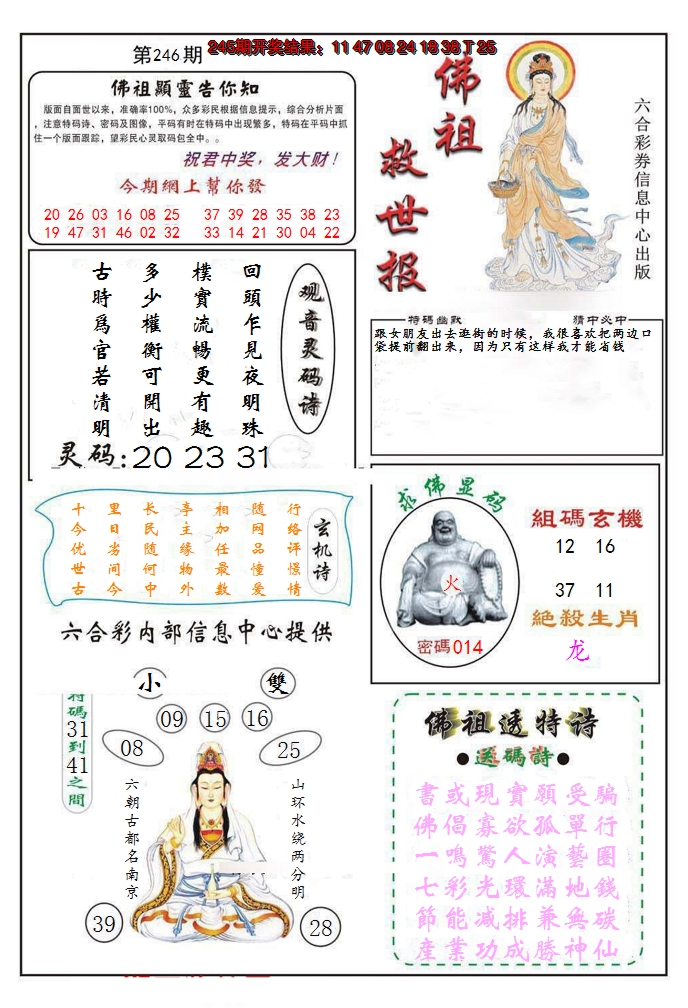 第246期
245期开奖结果：11 47 08 24 18 38 T 25
佛祖顯靈告你知
版面自面世以来，准确率100%，众多彩民根据信息提示，综合分析片面
，注意特码诗、密码及图像，平码有时在特码中出现繁多，特码在平码中抓
住一个版面跟踪，望彩民心灵取码包全中。。
祝君中奖，发大财！
今期網上幫你發
20 26 03 16 08 25 37 39 28 35 38 23
19 47 31 46 02 32 33 14 21 30 04 22
佛祖
救世报
六合彩券信息中心出版
观音灵码诗
回頭乍見夜明珠
樸實流暢更有趣
多少權衡可開出
古時爲官若清明
灵码:20 23 31
特码幽默
猜中必中
跟女朋友出去逛街的时候，我很喜欢把两边口
袋提前翻出来，因为只有这样我才能省钱
玄机诗
行络评憬情
随网品憧爱
相加任最数
亭主缘物外
长民随何中
里日劣间今
十今优世古
六合彩内部信息中心提供
求佛显码
火
密碼014
組碼玄機
12 16
37 11
絕殺生肖
龙
小
雙
特碼31到41之間
09 15 16
08 25
六朝古都名南京
山环水绕两分明
39 28
佛祖透特诗
●送碼詩●
書或現實願受騙
佛倡寡欲孤單行
一鳴驚人演藝圈
七彩光環滿地錢
節能减排兼無碳
産業功成勝神仙